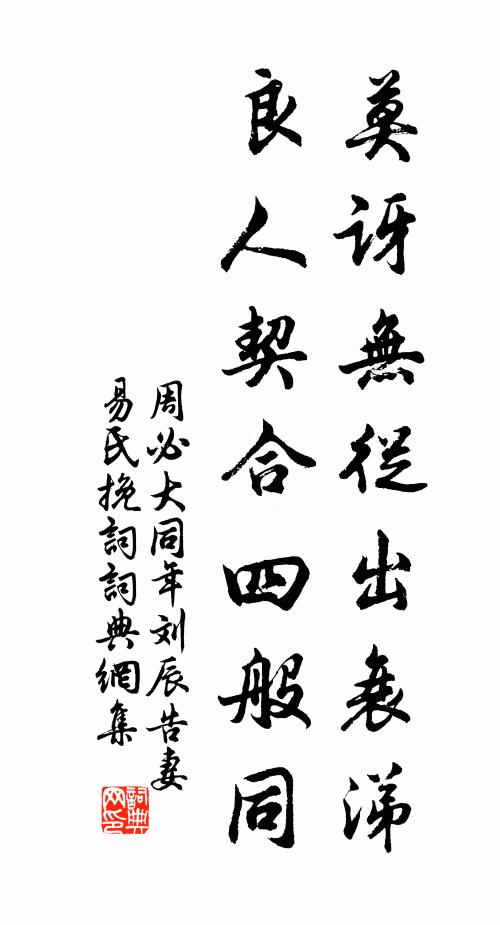 莫訝無從出衰涕
良人契合四般同
周必大同年刘辰告妻
易氏挽詞詞典網集
詞典网印